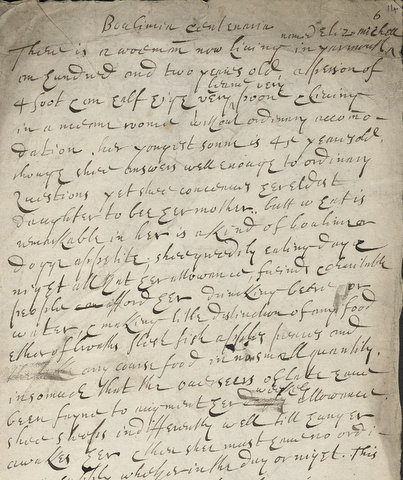 6 14
Boulimia Centenaria
named Eliz. michell
There is a woemm now Living in yarmouth
an hundred and two yeares old, a person of
leane very
4 foot and half high very & poore & living
in a meane roome without ordinary accomo-
dation. her yongest sonne is 45 yeares old.
though shee answers well enough to ordinary
Questions yet shee conceaves her eldest
daughter to bee her mother. butt what is
remarkable in her is a kind of boulime or
dogge appetite shee greedily eating day &
night all that her allowance freinds & charitable
people afford her drincking beere or
water, & making litle distinction of any food
ether of broaths flesh fish apples peares and
any course food in no small quantity.
insomuch that the overseers of late have
weekely
been fayne to augment her allowance.
shee sleeps indifferently well till hunger
awakes her & then shee must have no ordi-
whether in the day or night. This